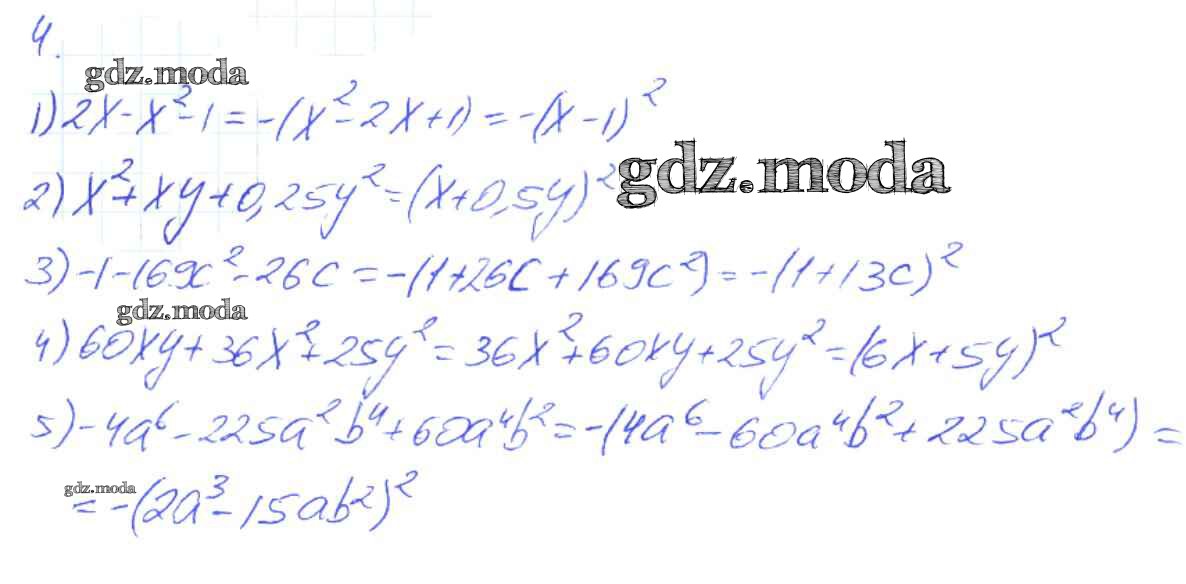 4.
gdz.moda
1) 2x - x² - 1 = -(x² - 2x + 1) = -(x - 1)²
gdz.moda
2) x² + xy + 0,25y² = (x + 0,5y)²
3) -1 - 169c² - 26c = -(1 + 26c + 169c²) = -(1 + 13c)²
gdz.moda
4) 60xy + 36x² + 25y² = 36x² + 60xy + 25y² = (6x + 5y)²
5) -4a⁶ - 225a²b⁴ + 60a⁴b² = -(4a⁶ - 60a⁴b² + 225a²b⁴) =
gdz.moda
= -(2a³ - 15ab²)²